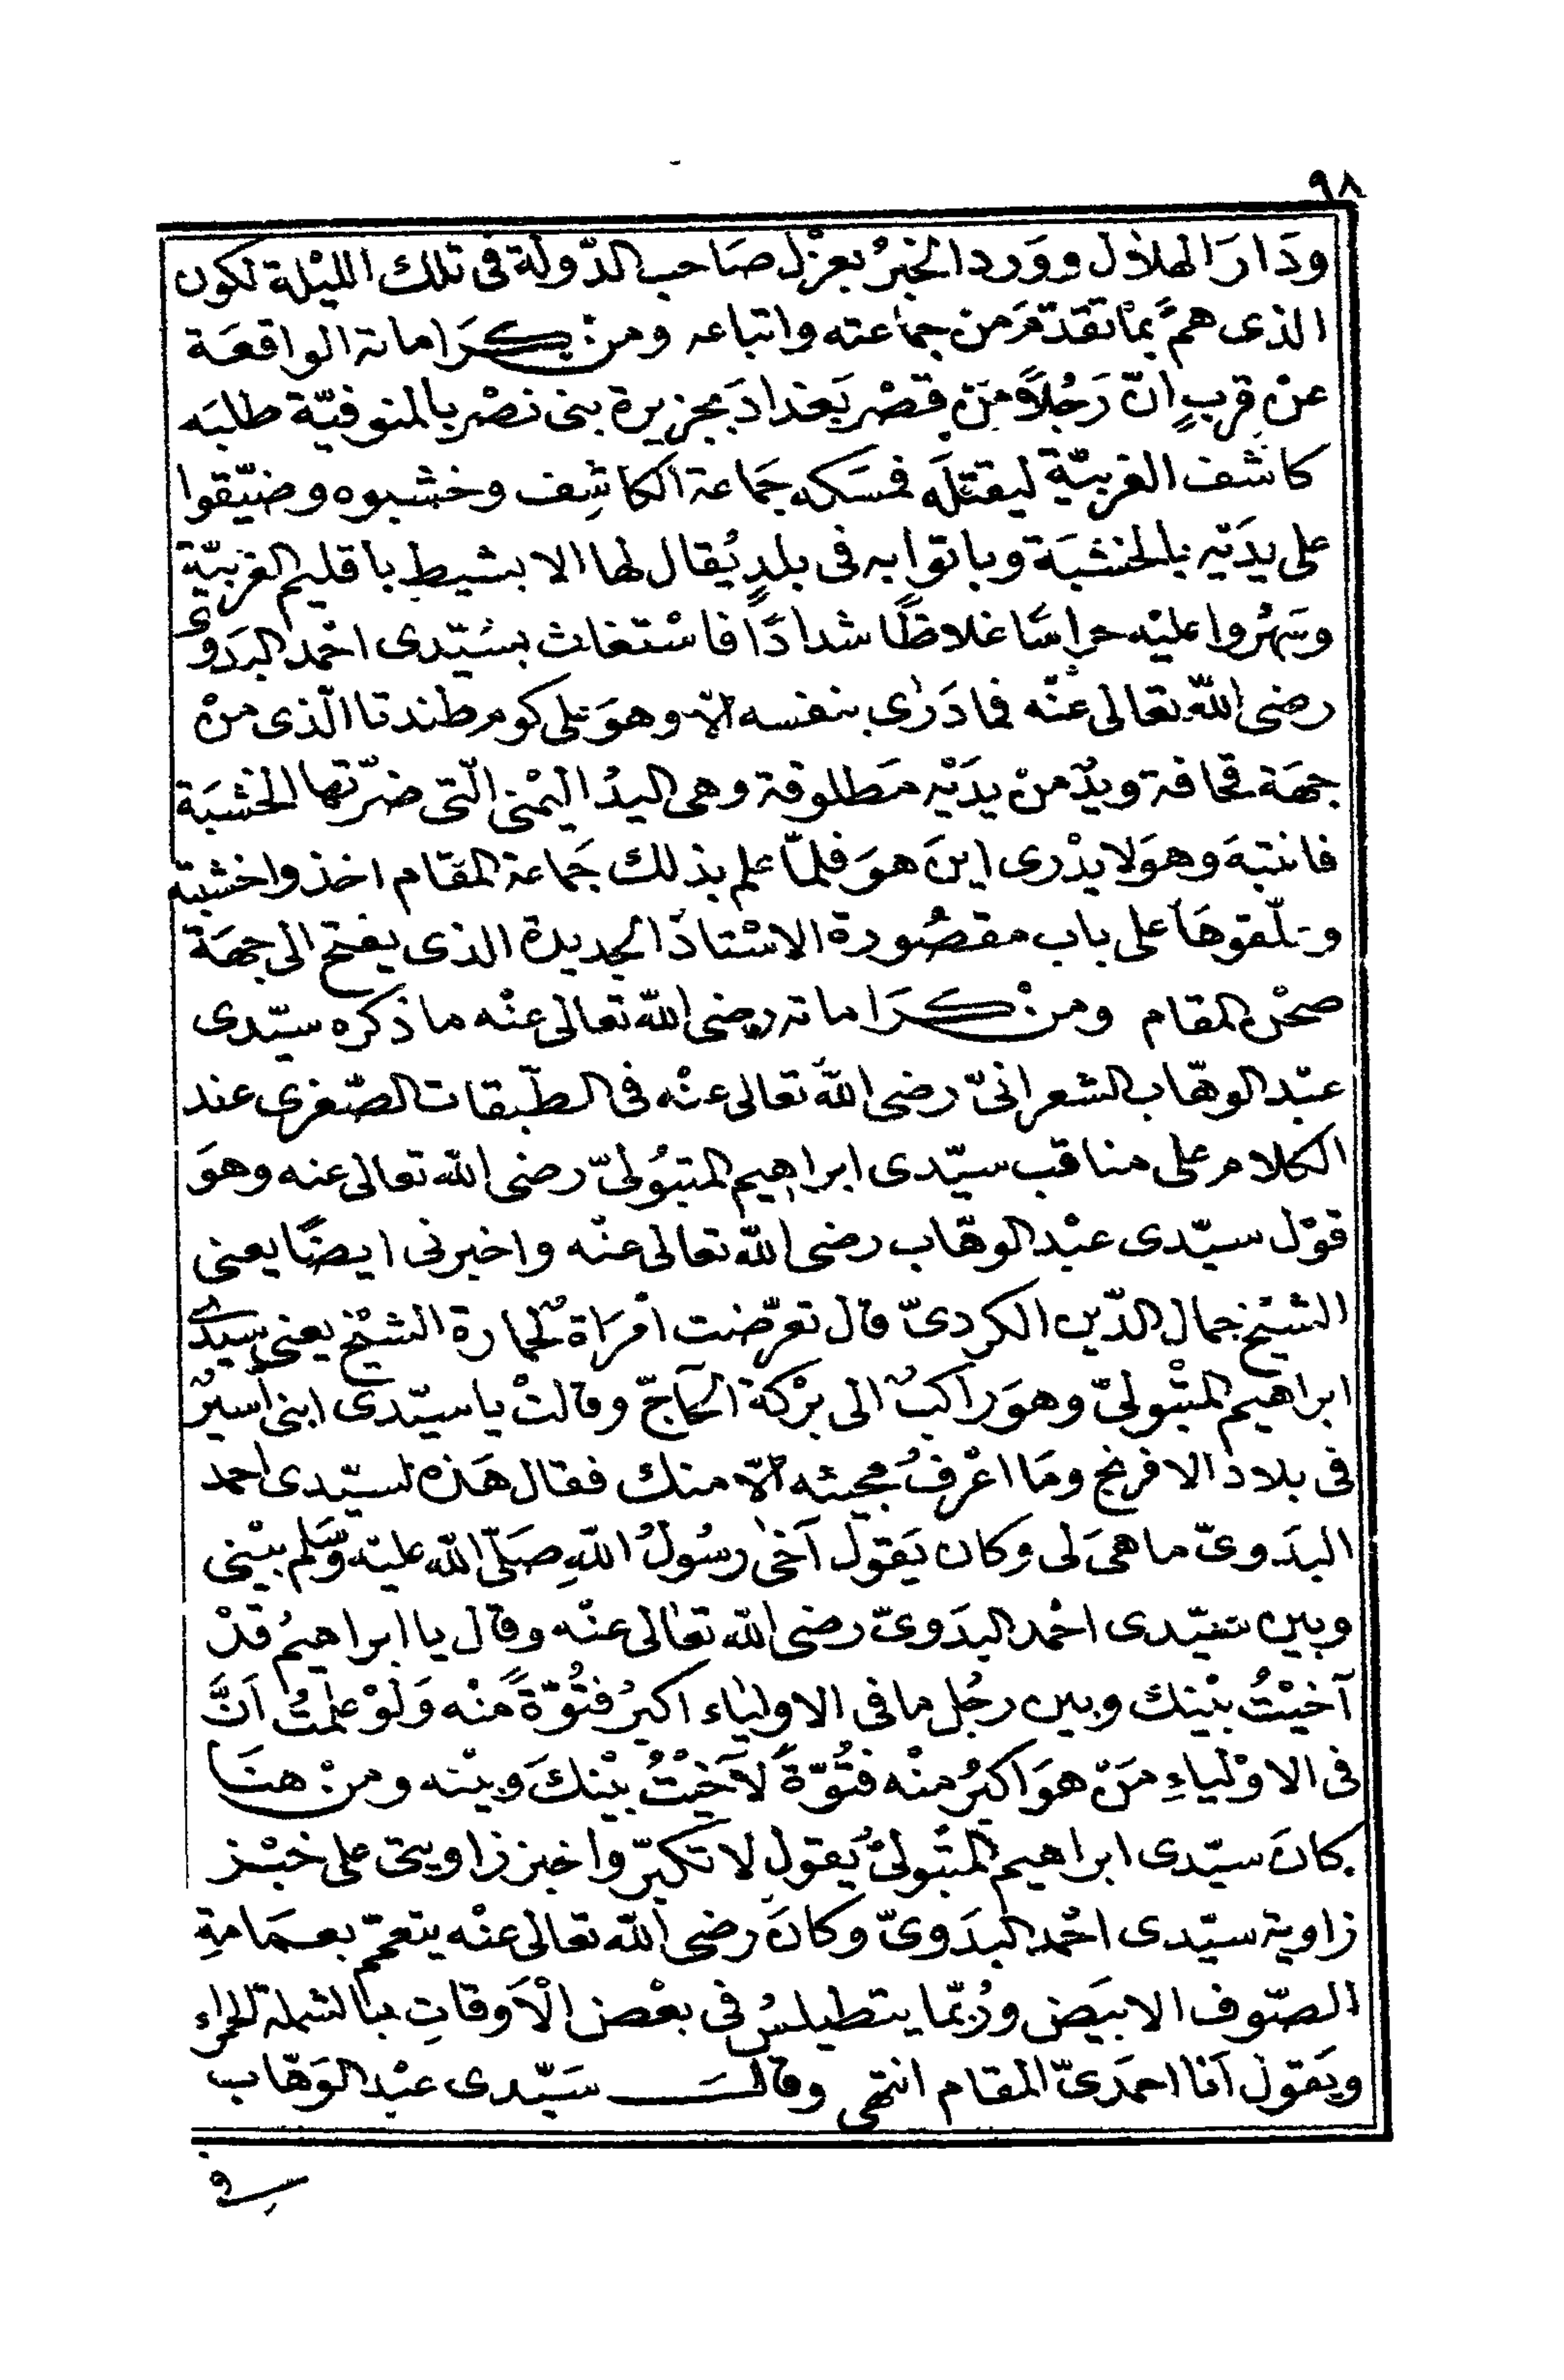 ٩٨
ودَارَ الهلال ووَرد الخبرُ بعزْل صَاحب الدّولة فى تلك الليْلة لكون
الذى همَّ بماتقدّمَ من جماعته واتباعه ومنْ كرَاماته الواقعَة
عنْ قربٍ انّ رَجُلاً منْ قصْر بَغدادَ بجزيرة بنى نصْر بالمنوفيّة طلبَه
كاشف الغربيّة ليقتلَه فمسَكه جَماعة الكاشِف وخشبوه وضيّقوا
على يدَيْه بالخشبَة وباتوا به فى بلدٍ يُقال لها الابشيط باقليم الغربيّة
وسَهرُوا عليْه حراسًا غلاظًا شدادًا فاسْتغاث بسَيّدى احْمد البدَوىّ
رضى اللّه تعالى عنْه فمادَرٰى بنفسه الاّ وهوَ على كوم طندتا الّذى منْ
جهَة قحافة ويدٌ منْ يدَيْه مَطلوقة وهى اليدُ اليمْنى الّتى ضرّتها الخشبَة
فانتبهَ وهوَ لايدْرى اينَ هوَ فلمّا علم بذلك جَماعة المقام اخذوا خشبته
وعلّقوهَا على باب مقصُورة الاسْتاذ الجديدة الذى يفتح الى جهَة
صحْن المقام ومنْ كرَاماته رضى اللّه تعالى عنْه ماذكره سيّدى
عبْد الوهّاب الشعرانىّ رضى اللّه تعالى عنْه فى الطّبقات الصّغرى عند
الكلام على مناقب سيّدى ابراهيم المتبُولىّ رضى اللّه تعالى عنه وهوَ
قوْل سيّدى عبْد الوهّاب رضى اللّه تعالى عنْه واخبرنى ايضًا يعنى
الشيْخ جمال الدّين الكردىّ قال تعرّضت امْرَاة لحمارة الشيْخ يعنى سيّدى
ابراهيم المتبْولىّ وهوَ راكبٌ الى برْكة الحاجّ وقالتْ ياسيّدى ابنى أسيرٌ
فى بلاد الافرنج ومَا اعْرفُ مجيئه الاّ منك فقال هَذه لسيّدى احمد
البدَوىّ ماهىَ لى وكان يَقول آخى رسُولُ اللّهِ صَلّى اللّه عليْه وَسَلم بيْنى
وبين سيّدى احْمد البدَوىّ رضى اللّه تعالى عنْه وقال يا ابراهيمُ قدْ
آخيْتُ بيْنك وبين رجُل مافى الاولياء اكبرُ فتُوّةً منْه وَلَوْ علمتُ اَنَّ
فى الاوْلياءِ مَنْ هوَ اكبرُ منْه فتُوّةً لآخيْتُ بيْنكَ وبيْنه ومنْ هنَا
كانَ سيّدى ابراهيم المتبولىُّ يَقول لا تكبّروا خبز زاويتى على خبْز
زاوية سيّدى احْمد البدَوىّ وكانَ رضى اللّه تعالى عنْه يتعمّم بعمَامةِ
الصّوف الابيَض ورُبّما يتطيلسُ فى بعْض الْاَوقاتِ بالشملة الحمراء
ويَقول اَنا احمَدىّ المقام انتهى وقالَ سَيّدى عبْد الوَهّاب
فى